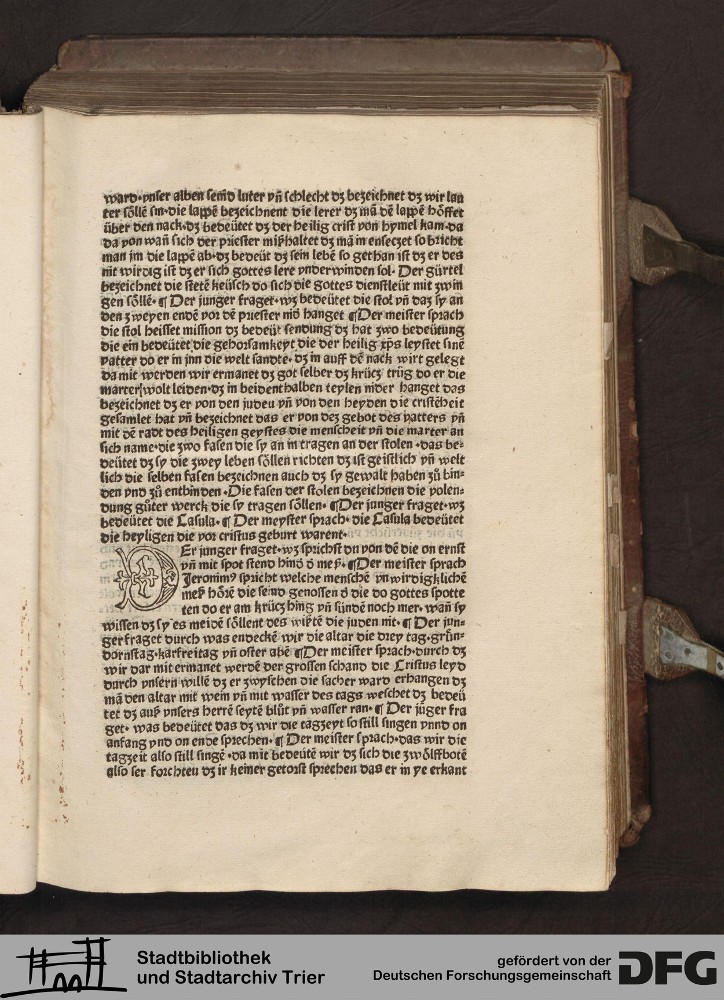 ward·vnser alben semd luter vñ schlecht dz bezeichnet dz wir lau
ter söllē sin·die lappē bezeichnent die lerer dz mā dē lappē höffet
über den nack·dz bedeütet dz der heilig crist von hymel kam·da
da von wañ sich der priester mißhaltet dz mā in enseczet so bricht
man im die lappē ab·dz bedeüt dz sein lebē so gethan ist dz er des
nit wirdig ist dz er sich gottes lere vnderwinden sol· Der gürtel
bezeichnet die stetē keüsch do sich die gottes dienstleüt mit zwin
gen söllē· ¶ Der junger fraget·wz bedeütet die stol vñ daz sy an
den zweyen endē vor dē priester nid hanget ¶Der meister sprach
die stol heisset mission dz bedeüt sendung dz hat zwo bedeütung
die ein bedeütet die gehorsamkeyt die der heilig xp̄s leystet sinē
vatter do er in jnn die welt sandte· dz in auff dē nack wirt gelegt
da mit werden wir ermanet dz got selber dz krücz trüg do er die
marter wolt leiden·dz in beidenthalben teylen nider hanget das
bezeichnet dz er von den juden vñ von den heyden die cristēheit
gesamlet hat vñ bezeichnet das er von dez gebot des vatters vñ
mit dē radt des heiligen geystes die menscheit vñ die marter an
sich name·die zwo fasen die sy an in tragen an der stolen ·das be-
deütet dz sy die zwey leben söllen richten dz ist geistlich vñ welt
lich die selben fasen bezeichnen auch dz sy gewalt haben zů bin-
den vnd zů entbinden ·Die fasen der stolen bezeichnen die volen-
dung gůter werck die sy tragen söllen· ¶Der junger fraget·wz
bedeütet die Casula· ¶ Der meyster sprach· die Casula bedeütet
die heyligen die vor cristus geburt warent·
DEr junger fraget·wz sprichst du von dē die on ernst
vñ mit spot stend hind d̄ meß· ¶Der meister sprach
Jeronimꝰ spricht welche menschē vnwirdigklichē
meß hörē die seind genossen d̄ die do gottes spotte
ten do er am krücz hing vñ sündē noch mer· wañ sy
wissen dz sy es meidē söllent des wißtē die juden nit· ¶ Der jun-
ger fraget durch was endeckē wir die altar die drey tag·grün-
dornstag·karfreitag vñ oster abē ¶Der meister sprach·durch dz
wir dar mit ermanet werdē der grossen schand die Cristus leyd
durch vnsern willē dz er zwyschen die sacher ward erhangen dz
mā den altar mit wein vñ mit wasser des tags weschet dz bedeü
tet dz auß vnsers herrē seytē blůt vñ wasser ran· ¶ Der jüger fra
get· was bedeütet das dz wir die tagzeyt so still singen vnnd on
anfang vnd on ende sprechen· ¶ Der meister sprach·das wir die
tagzeit also still singē ·da mit bedeütē wir dz sich die zwölffbotē
also ser forchten dz ir keiner getorst sprechen das er in ye erkant
Stadtbibliothek
und Stadtarchiv Trier
gefördert von der
Deutschen Forschungsgemeinschaft
DFG